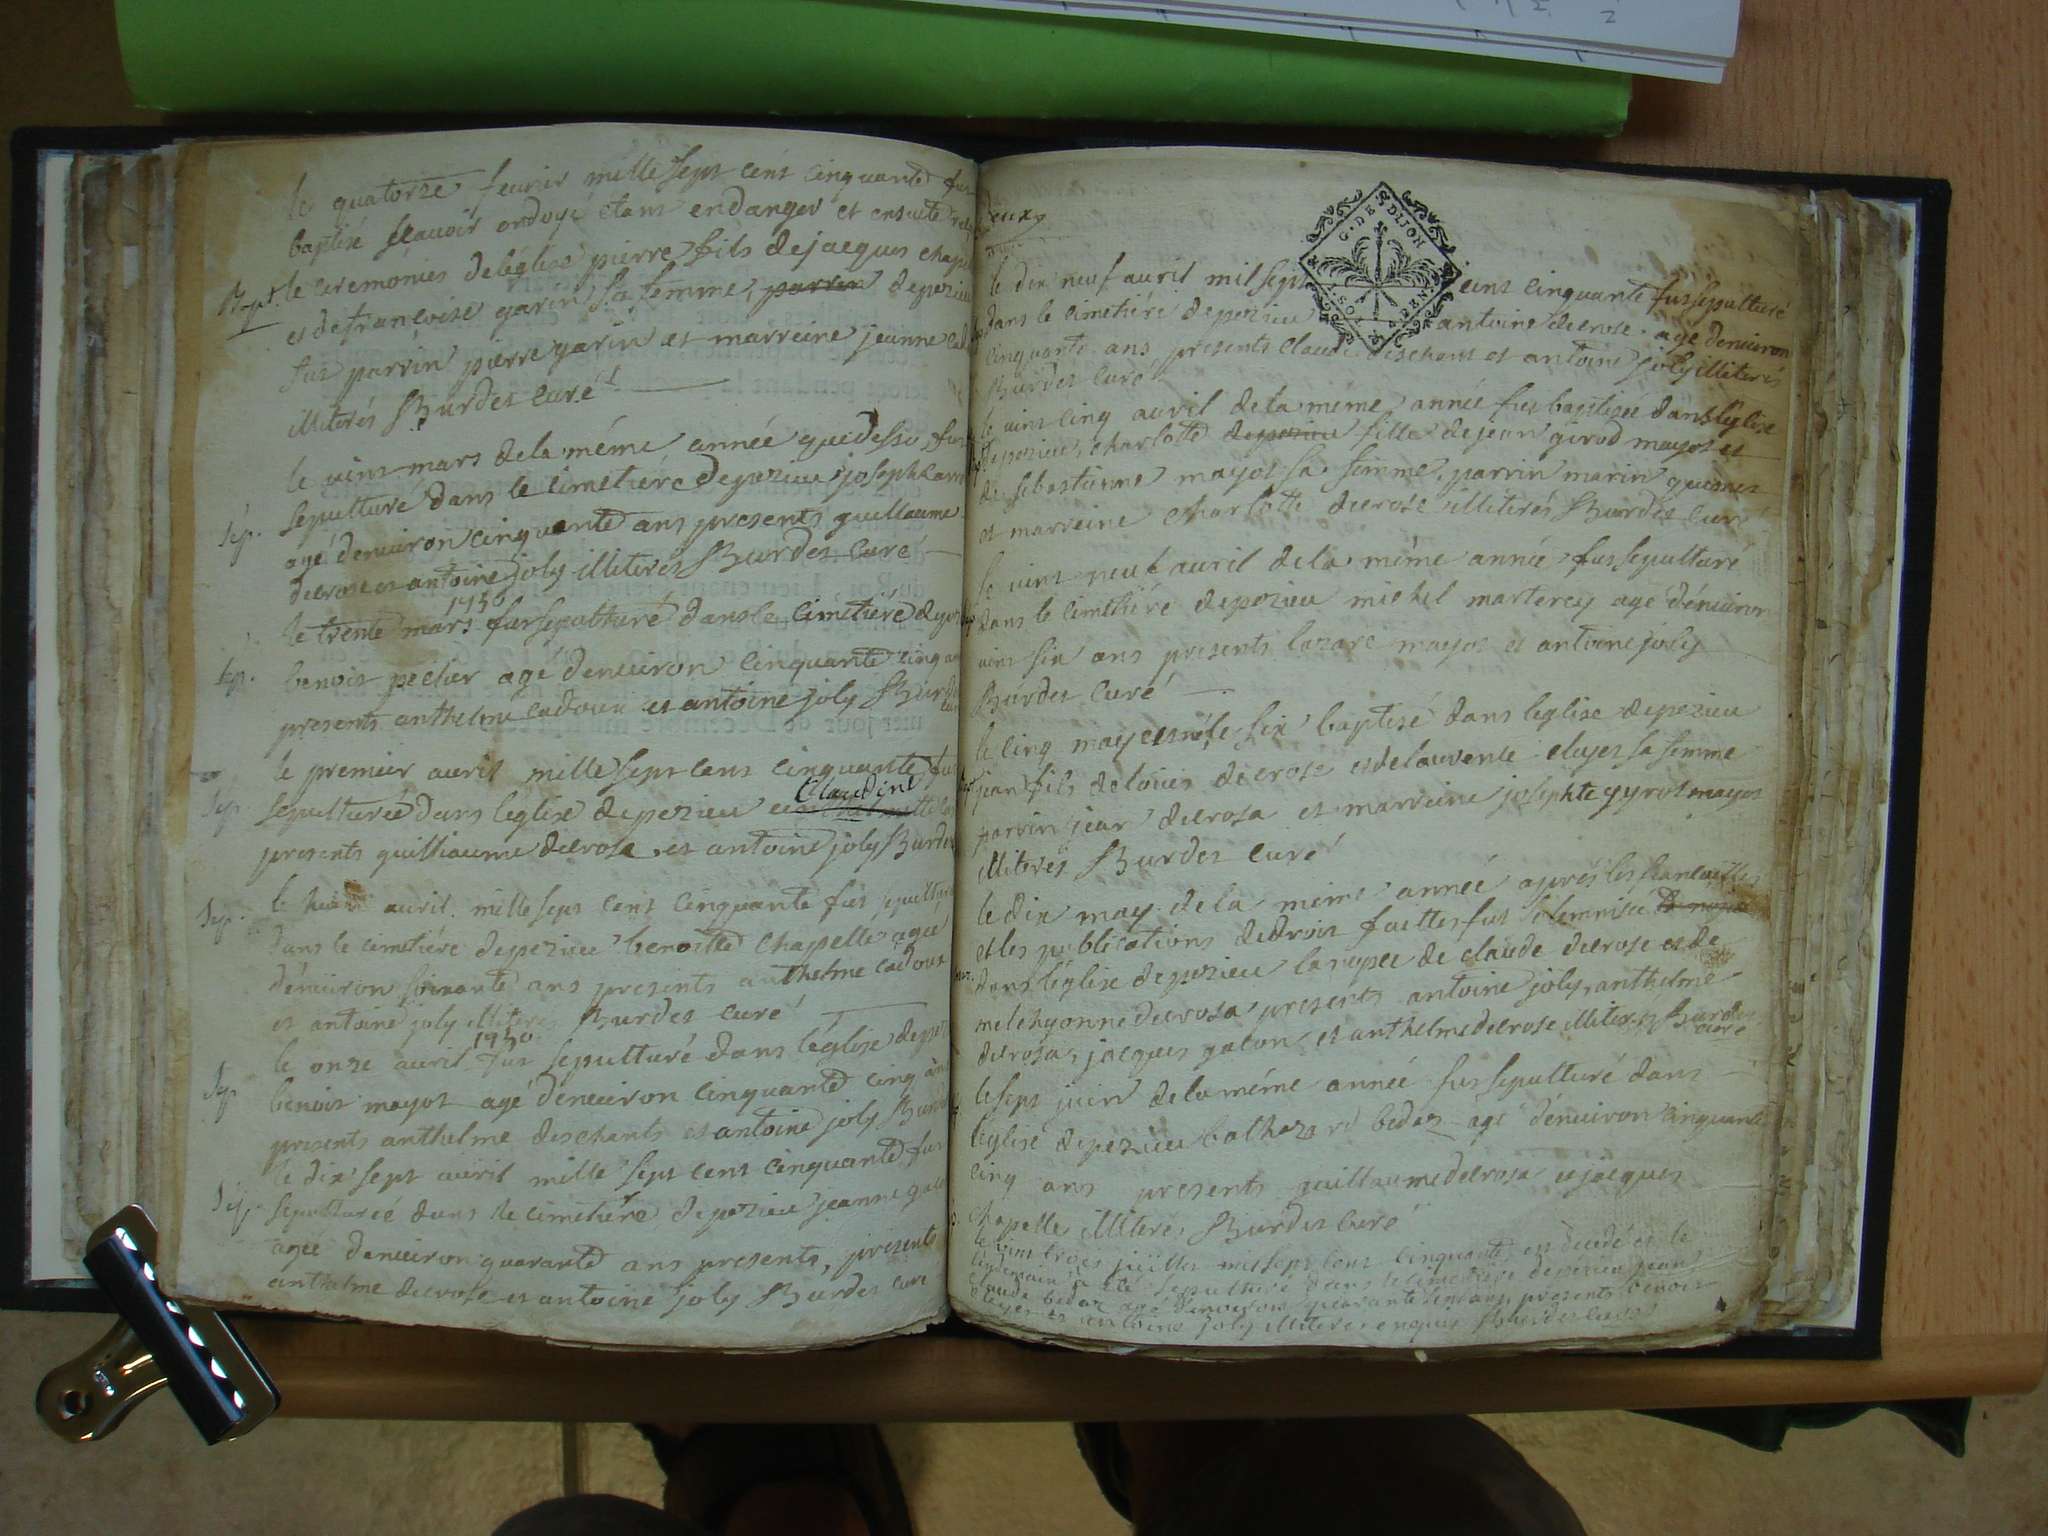 le quatorze feurier mille sept cent cinquante fut
baptisé scavoir ondoyé etans endanger et ensuite
Bapt. le ceremonies deléglise pierre fils dejacques chap
et defrancoise garin sa femme, parrin depezieu
fut parrin pierre garin et marreine jeanne
illiterés Burdet curé
le vint mars dela méme année quedessu fut
Sep. sepulturé dans le cimetiere depezieu joseph
agé denuiron cinquante ans presents guillaume
decrose et antoine joly illiterés Burdet curé
1750
le trente mars fut sepulturé dansle cimetiére depez
Sep. benoit pecher agé denuiron cinquante cinq
presents anthelme cadoux et antoine joly Burdet
le premier auril mille sept cens cinquante fut
Claudine
Sep. sepulturée dans leglise depezieu
presents guilliaume decrose et antoine joly Burdet
Sep. le huit auril mille sept cent cinquante fut sepultur
dans le cimetiére depezieu benoitte Chapelle agée
dénuiron soixante ans presents anthelme cadoux
et antoine joly illiterés Burdet curé
1750
le onze auril fut sepulturé dans léglise depez
Sep. benoit mayot agé denuiron cinquante cinq ans
presents anthelme deschants et antoine joly Burdet
le dix sept auril mille sept cent cinquante fut
Sep. sepulturée dans le cimetiére depezieu jeanne
agée denuiron quarante ans presents, presents
anthelme decrose et antoine joly Burdet curé
deux
G. DE DIJON
le dix neuf auril mil sept cens cinquante fut sepulturé
dans le cimetiére depezieu antoine decrose agé denuiron
cinquante ans presents claude deschant et antoine joly illiterés
Burdet curé
le vint cinq auril dela méme année fut baptisée dans leglise
depezieu, charlotte depezieu fille dejean girod mayot et
de sebastienne mayot sa femme, parrin marin
et marreine charlotte decrose illiterés Burdet curé
le vint neuf auril dela méme année fut sepulturé
dans le cimetiére depezieu michel martercy agé dénuiron
vint six ans presents lazare mayot et antoine joly
Burdet curé
le cinq may le six baptisé dans leglise depezieu
jean fils delouis decrose et delaurence clujet sa femme
parrin jean decrosa et marreine josephte gyrot mayot
illiterés Burdet curé
le dix may de la méme année aprés les fiancailles
et les publications dedroit faittes fut solemnisée
dans léglise depezieu la nopce de claude decrose et de
melchyonne decrosa presents antoine joly, anthelme
decrosa, jacques galon et anthelme decrose illiterés Burdet
curé
le sept juin de la méme année fut sepulturé dans
leglise depezieu balthazard bedaz agé dénuiron cinquante
cinq ans presents guillaume decrosa et jacques
chapelle illiterés Burdet curé
le vint trois juillet mil sept cent cinquante est decedé et le
lendemain a été sepulturé dans le cimetiére depezieu jean
claude bedaz agé denuiron quarante ans presents benoit
et antoine joly illiterés enquis Burdet curé